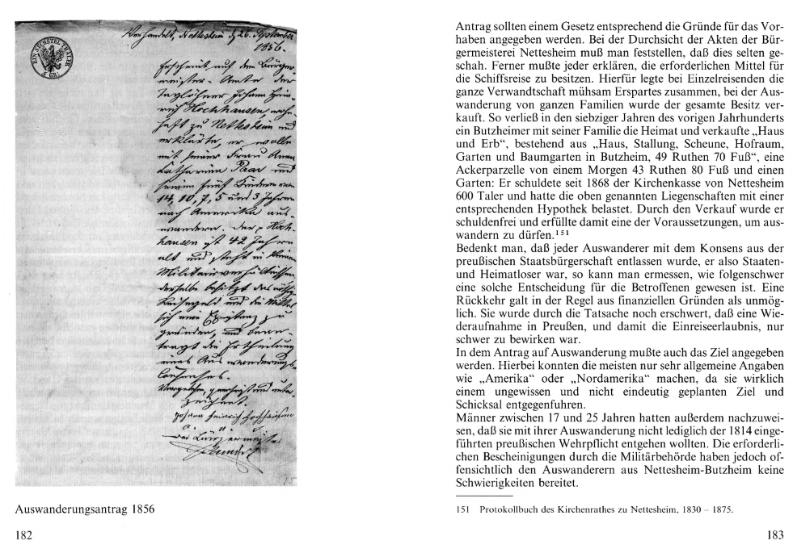 Verhandelt, Nettesheim d 26. September
1856.
EIN SECHSTEL THALER
Erscheint auf dem Bürger-
meister-Amte der
Taglöhner Johann Hein-
rich Hochhausen wohn-
haft zu Nettesheim und
erklärte, er wolle
mit seiner Frau Anna
Katharina Paar und
seinen fünf Kindern von
14, 10, 7, 5 und 3 Jahren
nach Amerika aus-
wandern. Der p Hoch-
hausen ist 42 Jahre
alt und steht in keinem
Militairverhältnisse
derselbe besitzt das nöthige
Reisegeld und die Mittel
sich eine Existenz zu
gründen, und bean-
tragt die Ertheilung
eines Auswanderungs-
Consenses.
Vorgelesen, genehmigt und unter-
zeichnet.
Johann Heinrich Hochhausen
a. u. s.
Der Bürgermeister
Auswanderungsantrag 1856
182
Antrag sollten einem Gesetz entsprechend die Gründe für das Vor-
haben angegeben werden. Bei der Durchsicht der Akten der Bür-
germeisterei Nettesheim muß man feststellen, daß dies selten ge-
schah. Ferner mußte jeder erklären, die erforderlichen Mittel für
die Schiffsreise zu besitzen. Hierfür legte bei Einzelreisenden die
ganze Verwandtschaft mühsam Erspartes zusammen, bei der Aus-
wanderung von ganzen Familien wurde der gesamte Besitz ver-
kauft. So verließ in den siebziger Jahren des vorigen Jahrhunderts
ein Butzheimer mit seiner Familie die Heimat und verkaufte „Haus
und Erb“, bestehend aus „Haus, Stallung, Scheune, Hofraum,
Garten und Baumgarten in Butzheim, 49 Ruthen 70 Fuß“, eine
Ackerparzelle von einem Morgen 43 Ruthen 80 Fuß und einen
Garten: Er schuldete seit 1868 der Kirchenkasse von Nettesheim
600 Taler und hatte die oben genannten Liegenschaften mit einer
entsprechenden Hypothek belastet. Durch den Verkauf wurde er
schuldenfrei und erfüllte damit eine der Voraussetzungen, um aus-
wandern zu dürfen.¹⁵¹
Bedenkt man, daß jeder Auswanderer mit dem Konsens aus der
preußischen Staatsbürgerschaft entlassen wurde, er also Staaten-
und Heimatloser war, so kann man ermessen, wie folgenschwer
eine solche Entscheidung für die Betroffenen gewesen ist. Eine
Rückkehr galt in der Regel aus finanziellen Gründen als unmög-
lich. Sie wurde durch die Tatsache noch erschwert, daß eine Wie-
deraufnahme in Preußen, und damit die Einreiseerlaubnis, nur
schwer zu bewirken war.
In dem Antrag auf Auswanderung mußte auch das Ziel angegeben
werden. Hierbei konnten die meisten nur sehr allgemeine Angaben
wie „Amerika“ oder „Nordamerika“ machen, da sie wirklich
einem ungewissen und nicht eindeutig geplanten Ziel und
Schicksal entgegenfuhren.
Männer zwischen 17 und 25 Jahren hatten außerdem nachzuwei-
sen, daß sie mit ihrer Auswanderung nicht lediglich der 1814 einge-
führten preußischen Wehrpflicht entgehen wollten. Die erforderli-
chen Bescheinigungen durch die Militärbehörde haben jedoch of-
fensichtlich den Auswanderern aus Nettesheim-Butzheim keine
Schwierigkeiten bereitet.
151 Protokollbuch des Kirchenrathes zu Nettesheim, 1830 – 1875.
183